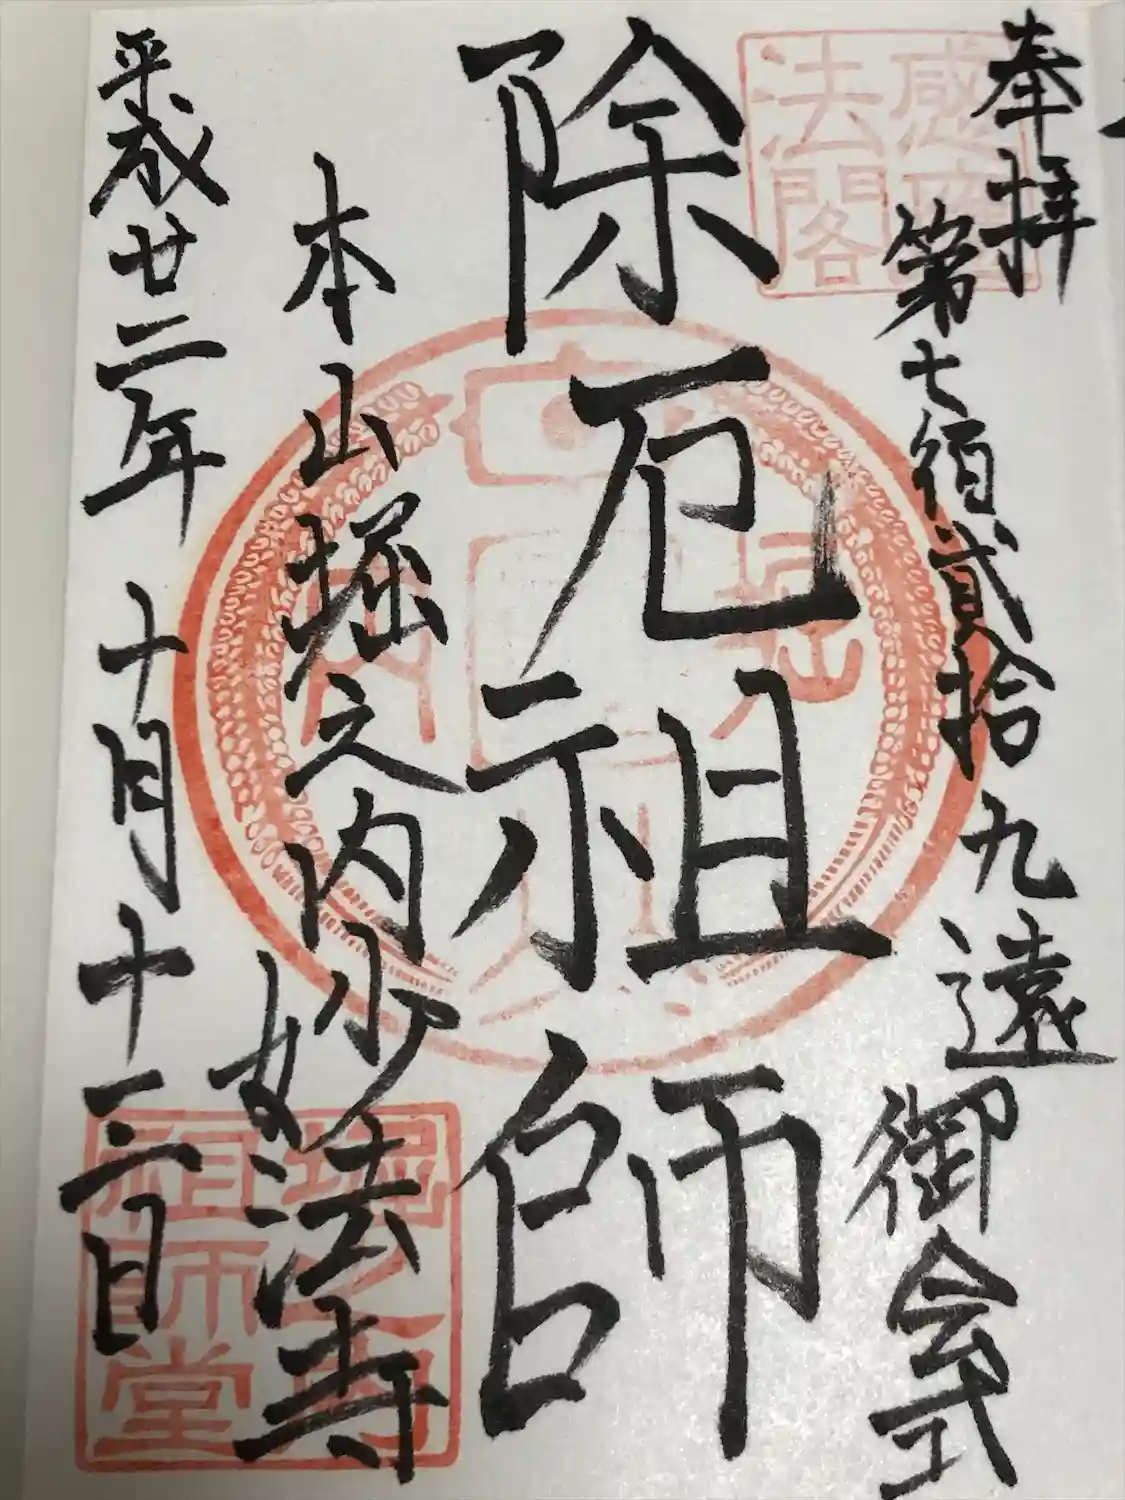 奉拝
第七佰貳拾九遠御会式
感應法閣
除厄祖師
本山堀之内妙法寺
平成廿二年十月十三日
堀之内祖師堂